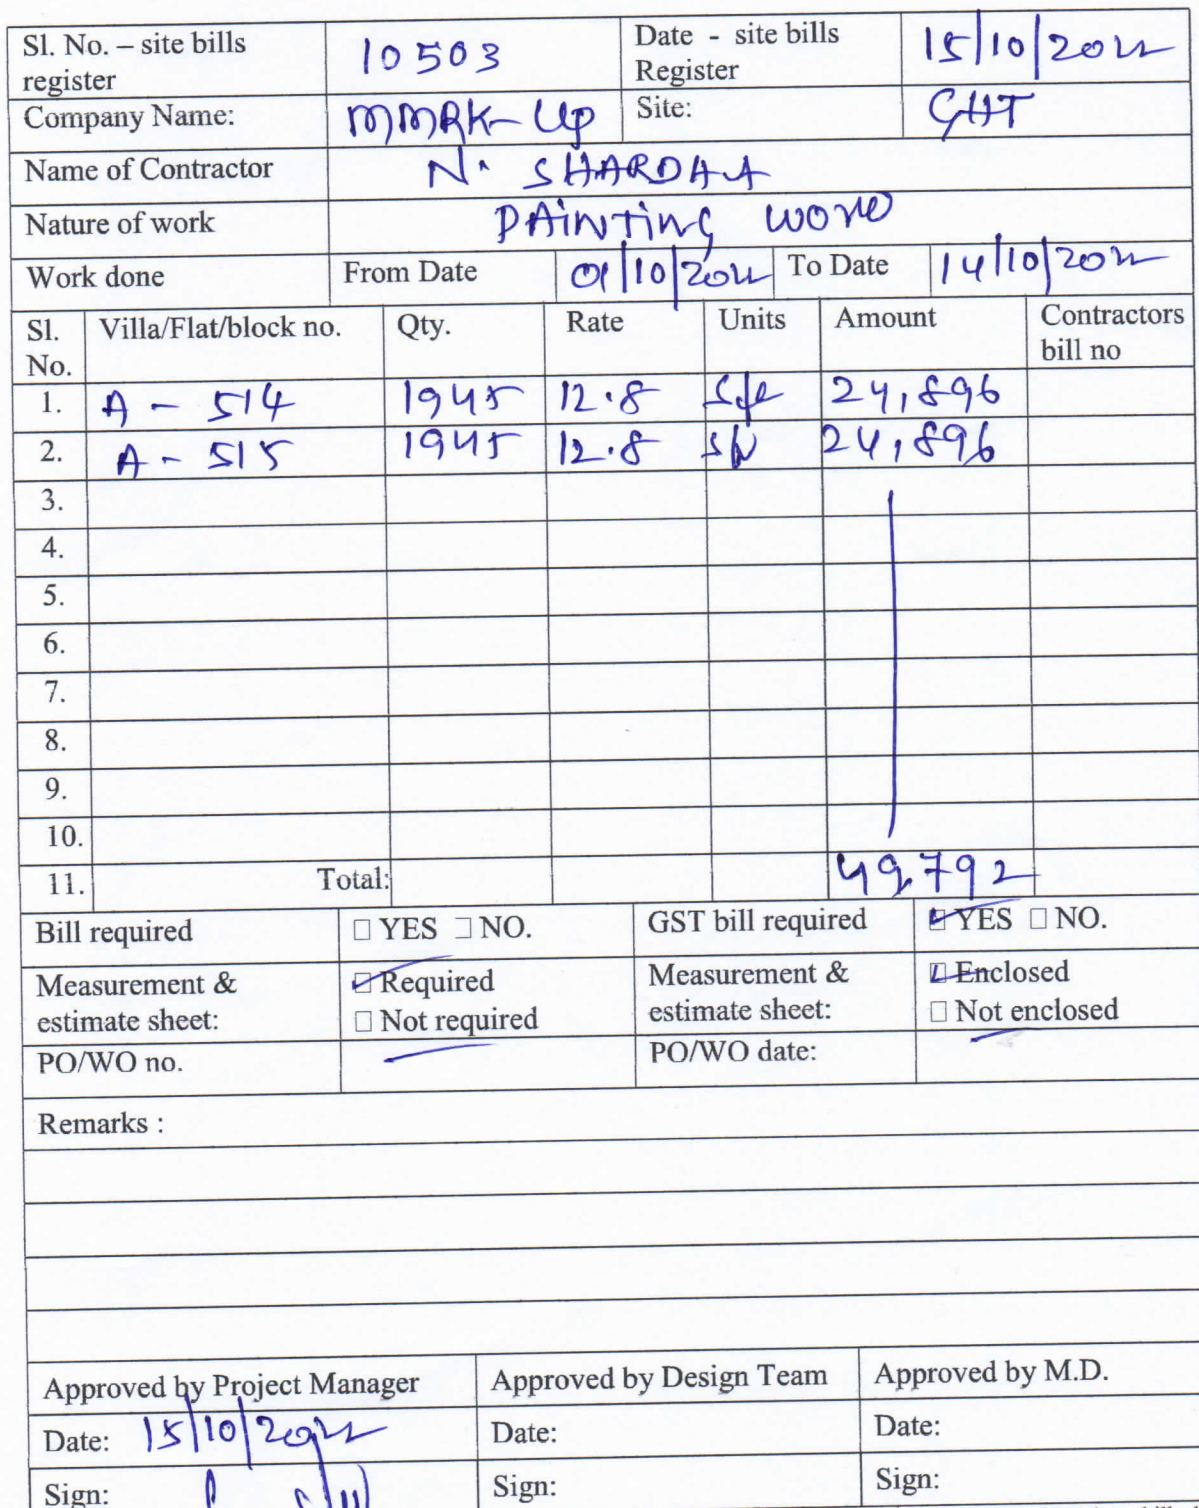 Sl. No. – site bills register 10503 Date - site bills Register 15/10/2022
Company Name: MMRK-Up Site: GHT
Name of Contractor N. SHARDHA
Nature of work PAiNTiNG WORK
Work done From Date 01/10/2022 To Date 14/10/2022
Sl. No. Villa/Flat/block no. Qty. Rate Units Amount Contractors bill no
1. A - 514 1945 12.8 Sft 24,896
2. A - 515 1945 12.8 sft 24,896
3.
4.
5.
6.
7.
8.
9.
10.
11. Total: 49,792
Bill required □ YES □ NO. GST bill required ☑ YES □ NO.
Measurement & estimate sheet: ☑ Required □ Not required Measurement & estimate sheet: ☑ Enclosed □ Not enclosed
PO/WO no. — PO/WO date: —
Remarks :
Approved by Project Manager Approved by Design Team Approved by M.D.
Date: 15/10/2022 Date: Date:
Sign: Sign: Sign: